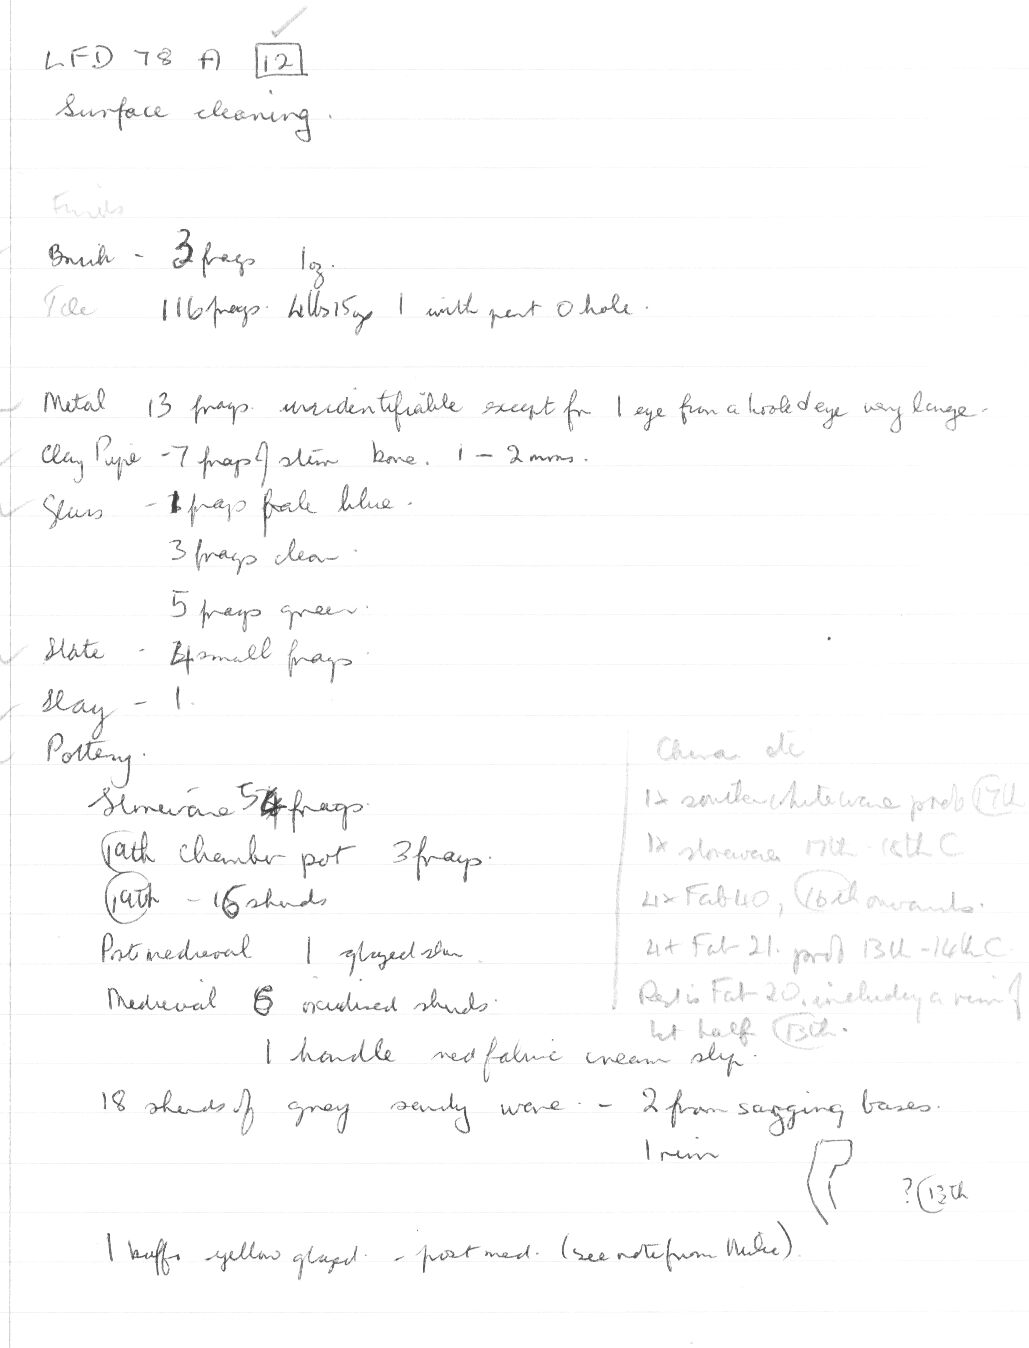 LFD 78 A 12
Surface cleaning.
Finds
Brick - 3 frags 1oz.
Tile 116 frags. 4lbs 15oz 1 with part O hole.
Metal 13 frags. unidentifiable except for 1 eye from a hook & eye very large.
Clay Pipe - 7 frags of stem bore. 1 - 2 mms.
Glass - 1 frags pale blue.
3 frags clear.
5 frags green.
Slate - 4 small frags.
Slag - 1.
Pottery.
Stoneware 54 frags.
19th chamber pot 3 frags.
19th - 16 sherds
Post medieval 1 glazed
Medieval 6 oxidised sherds.
1 handle red fabric cream slip.
18 sherds of grey sandy ware. - 2 from sagging bases.
1 rim
? 13th
1 buff yellow glazed. - post med. (see note from Mike).
China etc
1x whiteware prob 17th
1x stoneware 17th - 18th C
4x Fab 40, 16th onwards.
4x Fab 21. prob 13th - 14th C.
Rest is Fab 20, including a rim of
1st half 13th.